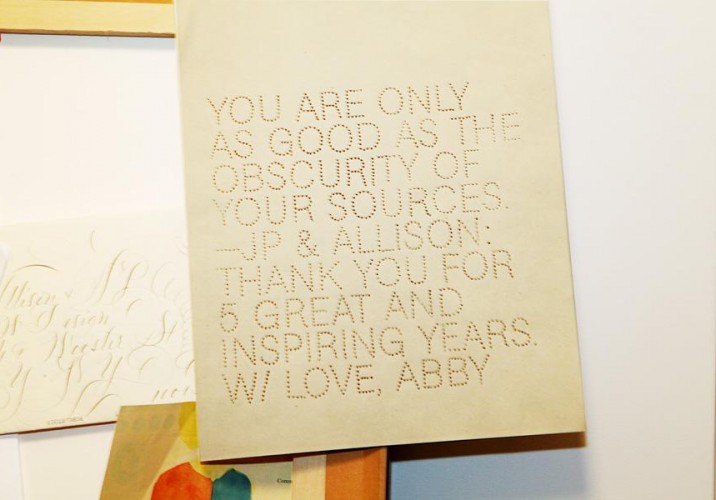 YOU ARE ONLY
AS GOOD AS THE
OBSCURITY OF
YOUR SOURCES.
—JP & ALLISON:
THANK YOU FOR
5 GREAT AND
INSPIRING YEARS.
W/ LOVE, ABBY